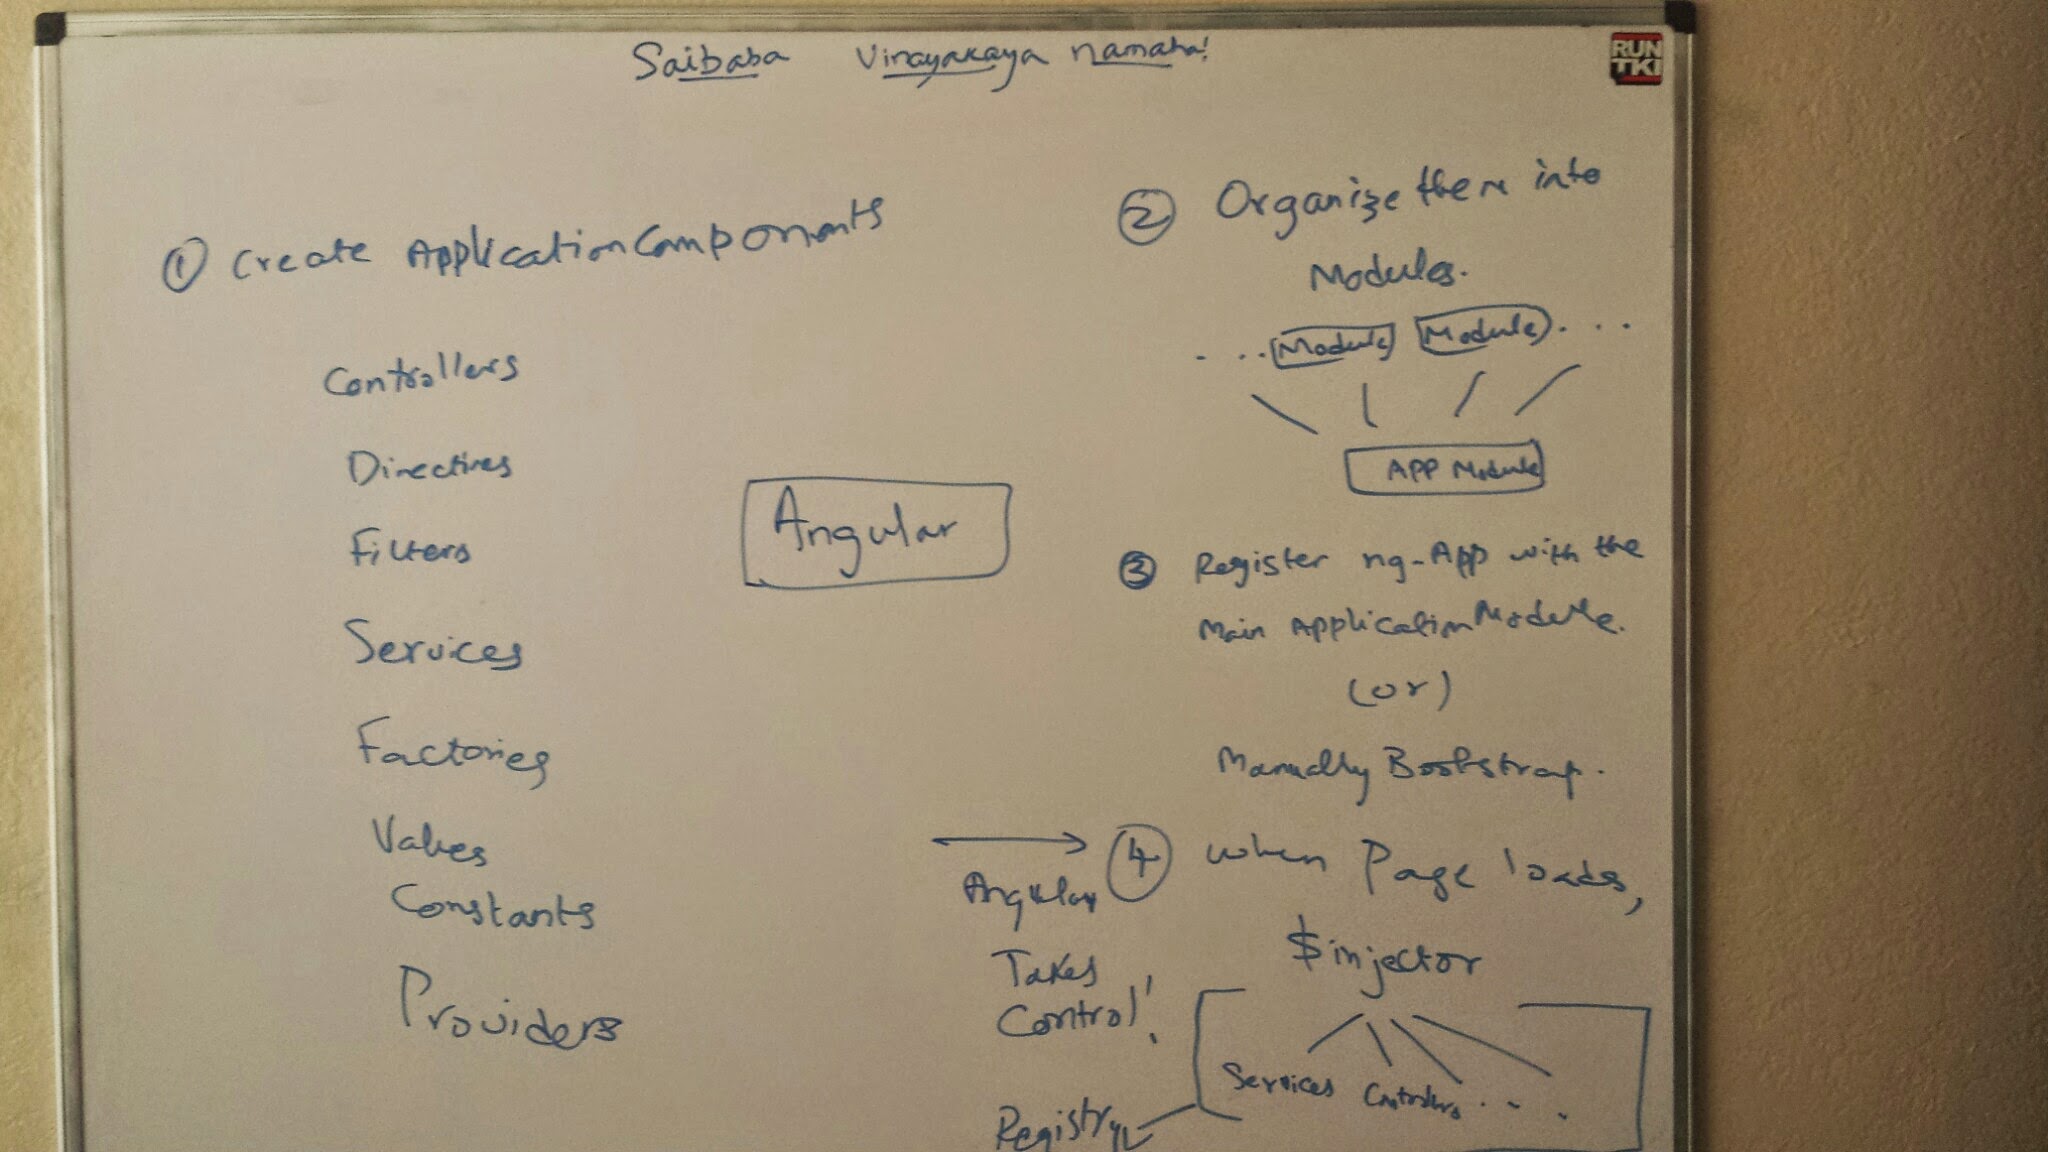 Saibaba Vinayakaya namaha!
RUN
TKI
① Create Application Components
Controllers
Directives
Filters
Services
Factories
Values
Constants
Providers
Angular
② Organize them into
Modules.
.... Module Module ....
APP Module
③ Register ng-App with the
Main Application Module.
(or)
Manually Bootstrap.
④ when Page loads,
Angular
Takes
Control!
$injector
Services Controllers ....
Registry